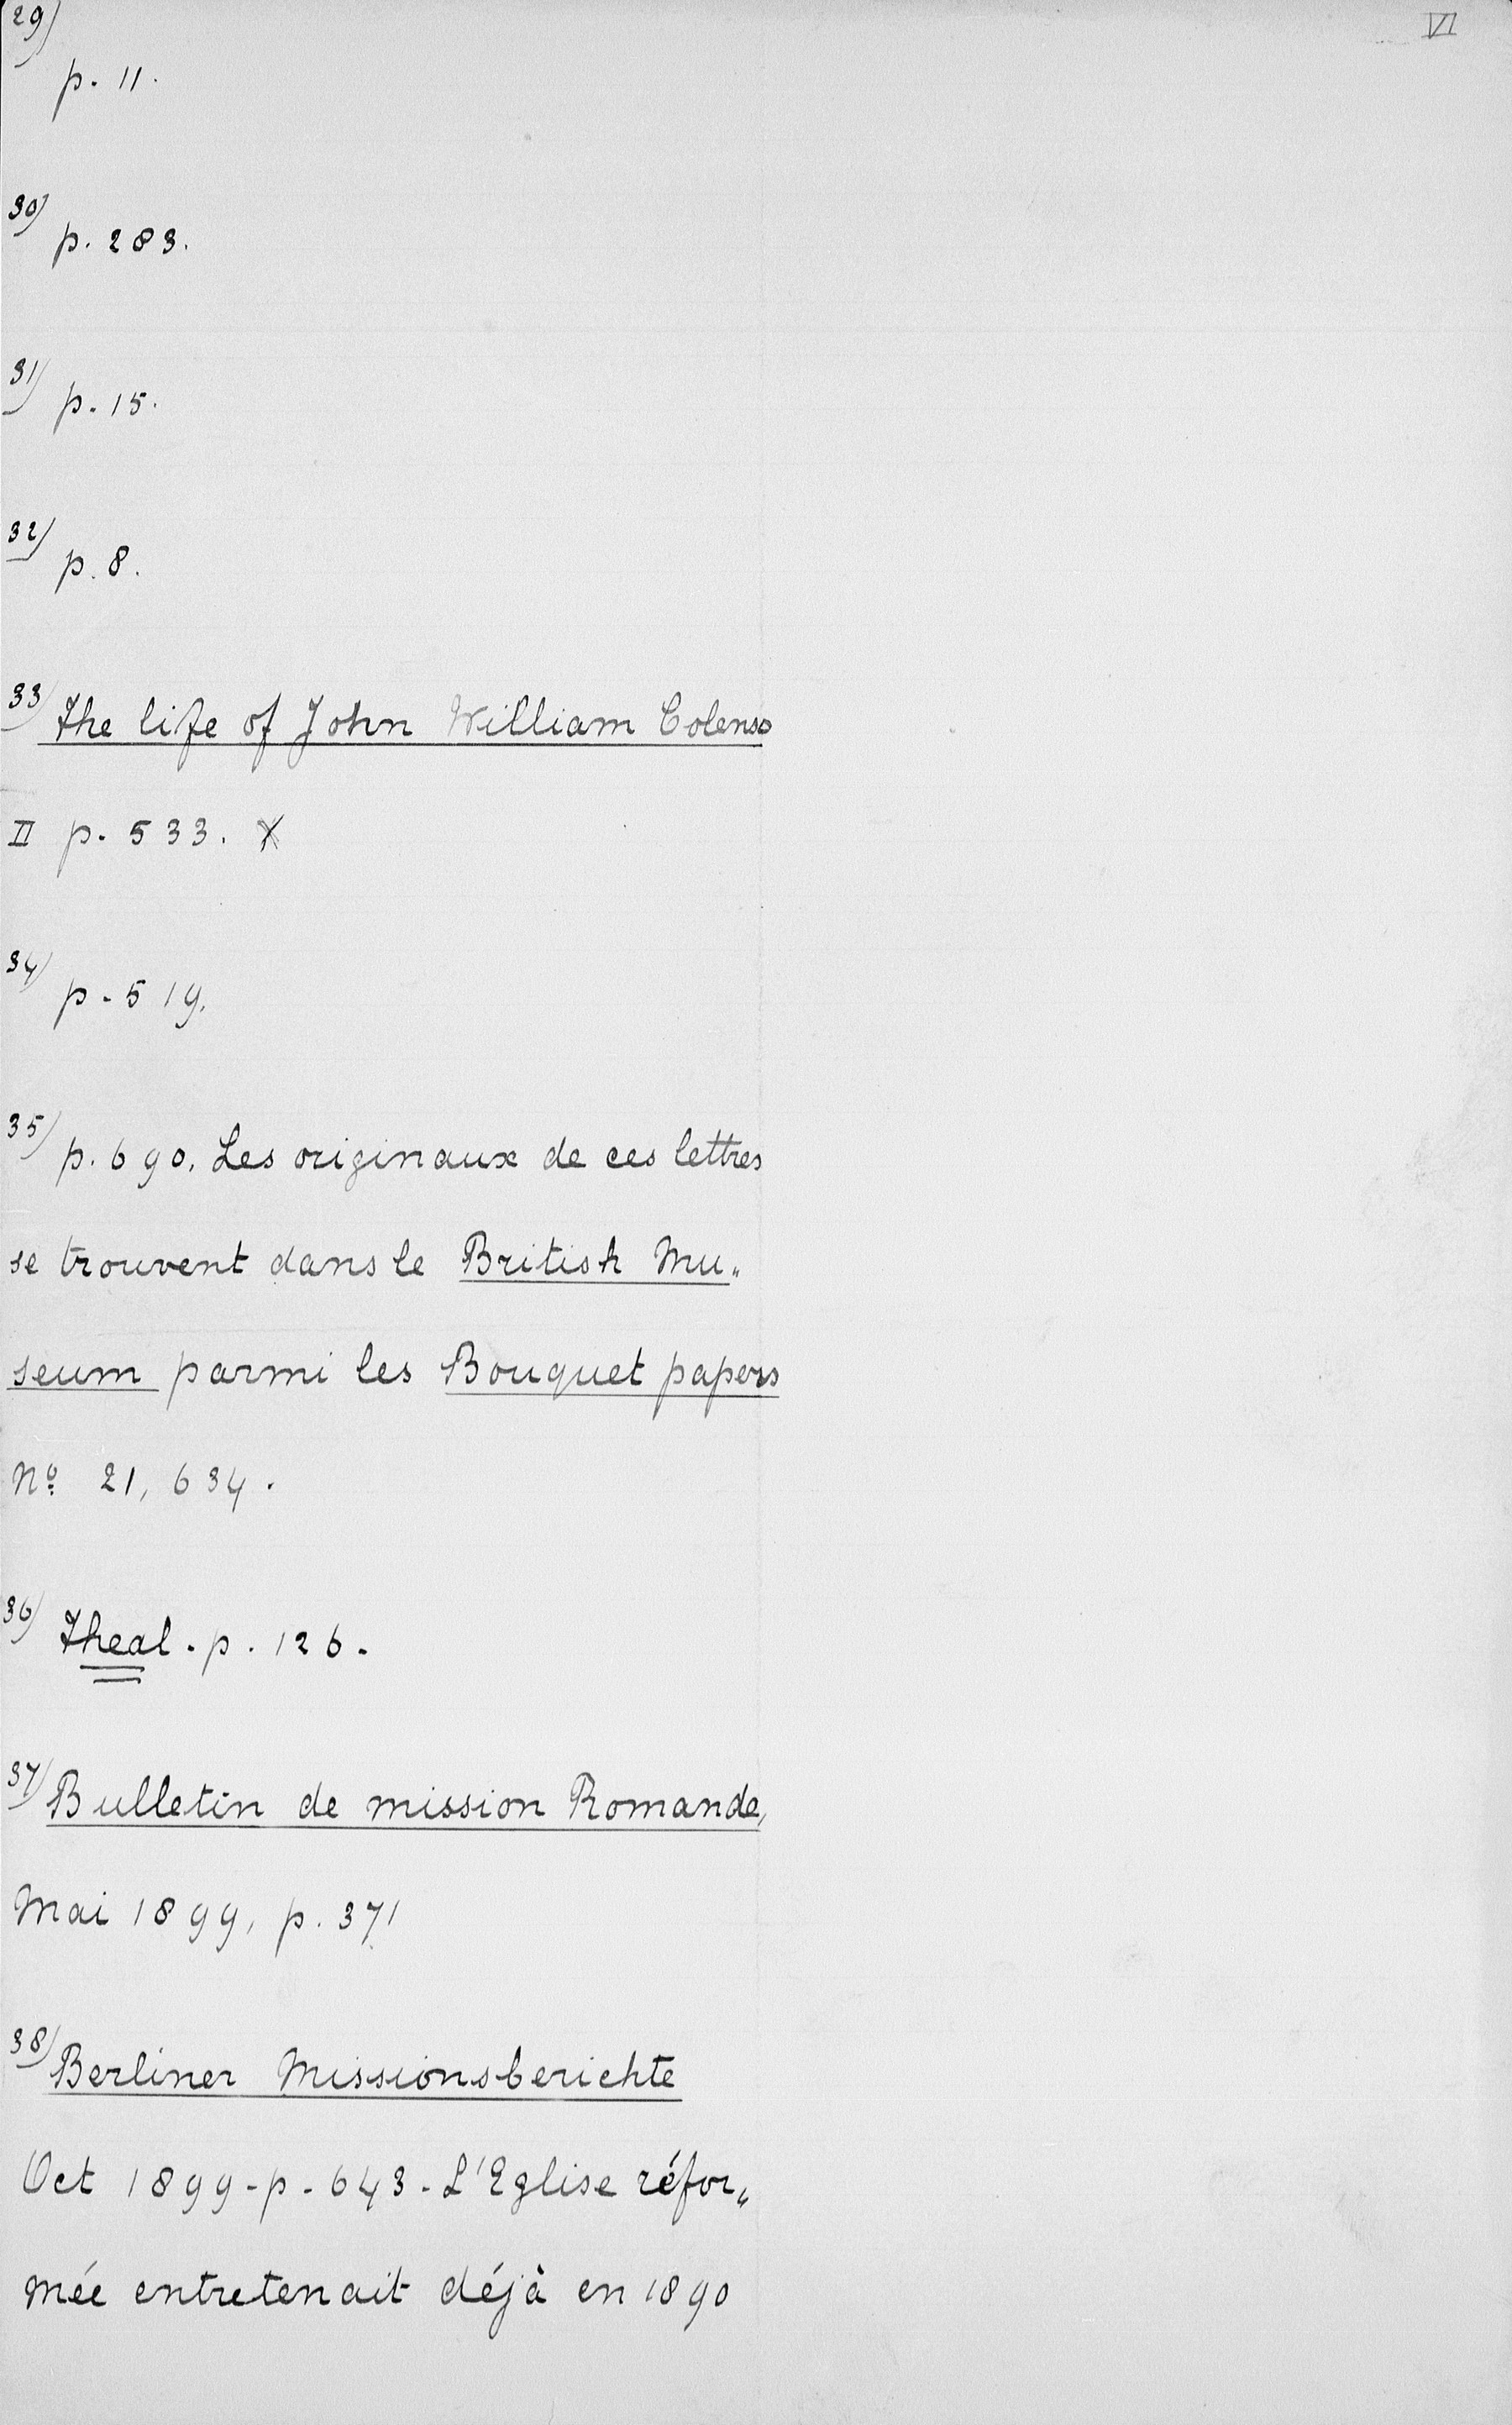 VI
29)
p. 11.
30)
p. 283.
31) p. 15.
32)
p. 8.
33) The life of John William Colenso
II p. 533. X
34)
p. 519.
35) p. 690. Les originaux de ces lettres
se trouvent dans le British Mu„
seum parmi les Bouquet papers
Nº 21,634.
36) Theal. p. 126.
37) Bulletin de mission Romande,
Mai 1899, p. 371
38) Berliner Missionsberichte
Oct 1899 - p. 643. L'Eglise réfor„
mée entretenait déjà en 1890